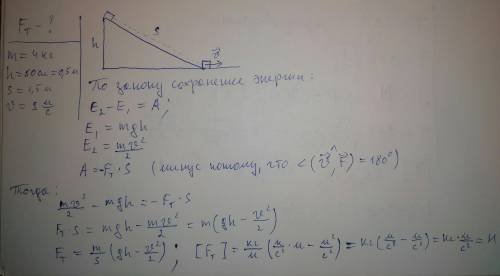 F_T - ?
m = 4 кг
h = 50 см = 0,5 м
S = 1,5 м
v = 3 м/с
h
S
v⃗
По закону сохранение энергии:
E₂ - E₁ = A ;
E₁ = mgh
E₂ = mv²/2
A = -F_T · S (минус потому, что ∠(v⃗,^F⃗) = 180°)
Тогда:
mv²/2 - mgh = -F_T · S
F_T S = mgh - mv²/2 = m(gh - v²/2)
F_T = m/S (gh - v²/2) ; [F_T] = кг/м (м/с² · м - м²/с²) = кг (м/с² - м/с²) = кг · м/с² = Н